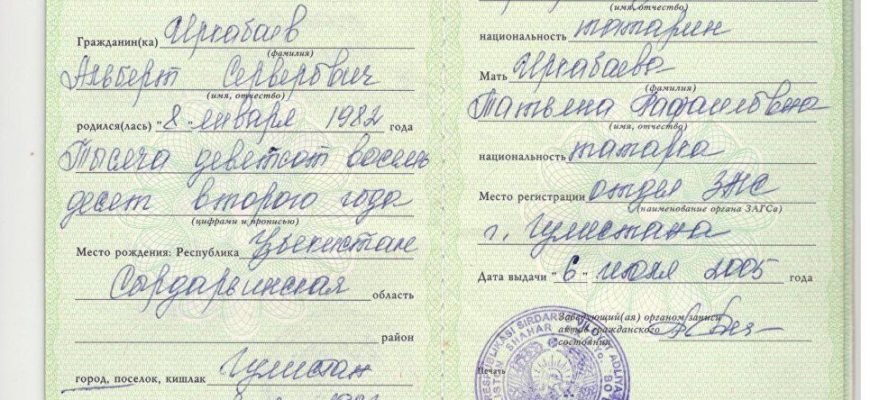 Гражданин(ка) Иркабаев
(фамилия)
Альберт Серверович
(имя, отчество)
родился(лась) "8" января 1982 года
Тысяча девятсот восемь
десят второго года
(цифрами и прописью)
Место рождения: Республика Узбекистан
Сырдарьинская область
район
город, поселок, кишлак Гулистан
(имя, отчество)
национальность татарин
Мать Иркабаева
(фамилия)
Татьяна Рафаиловна
(имя, отчество)
национальность татарка
Место регистрации отдел ЗАГС
(наименование органа ЗАГСа)
г. Гулистана
Дата выдачи "6" июля 2005 года
Заведующий(ая) органом записи
актов гражданского
состояния
Печать